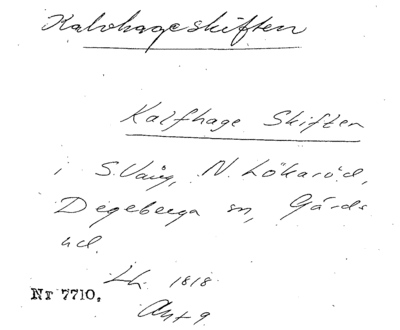 Kalvhageskiften
Kalfhage Skiften
i S. Vång, N. Lökaröd,
Degeberga sn, Gärds
hd.
Lh. 1818
Akt 9
Nr 7710.